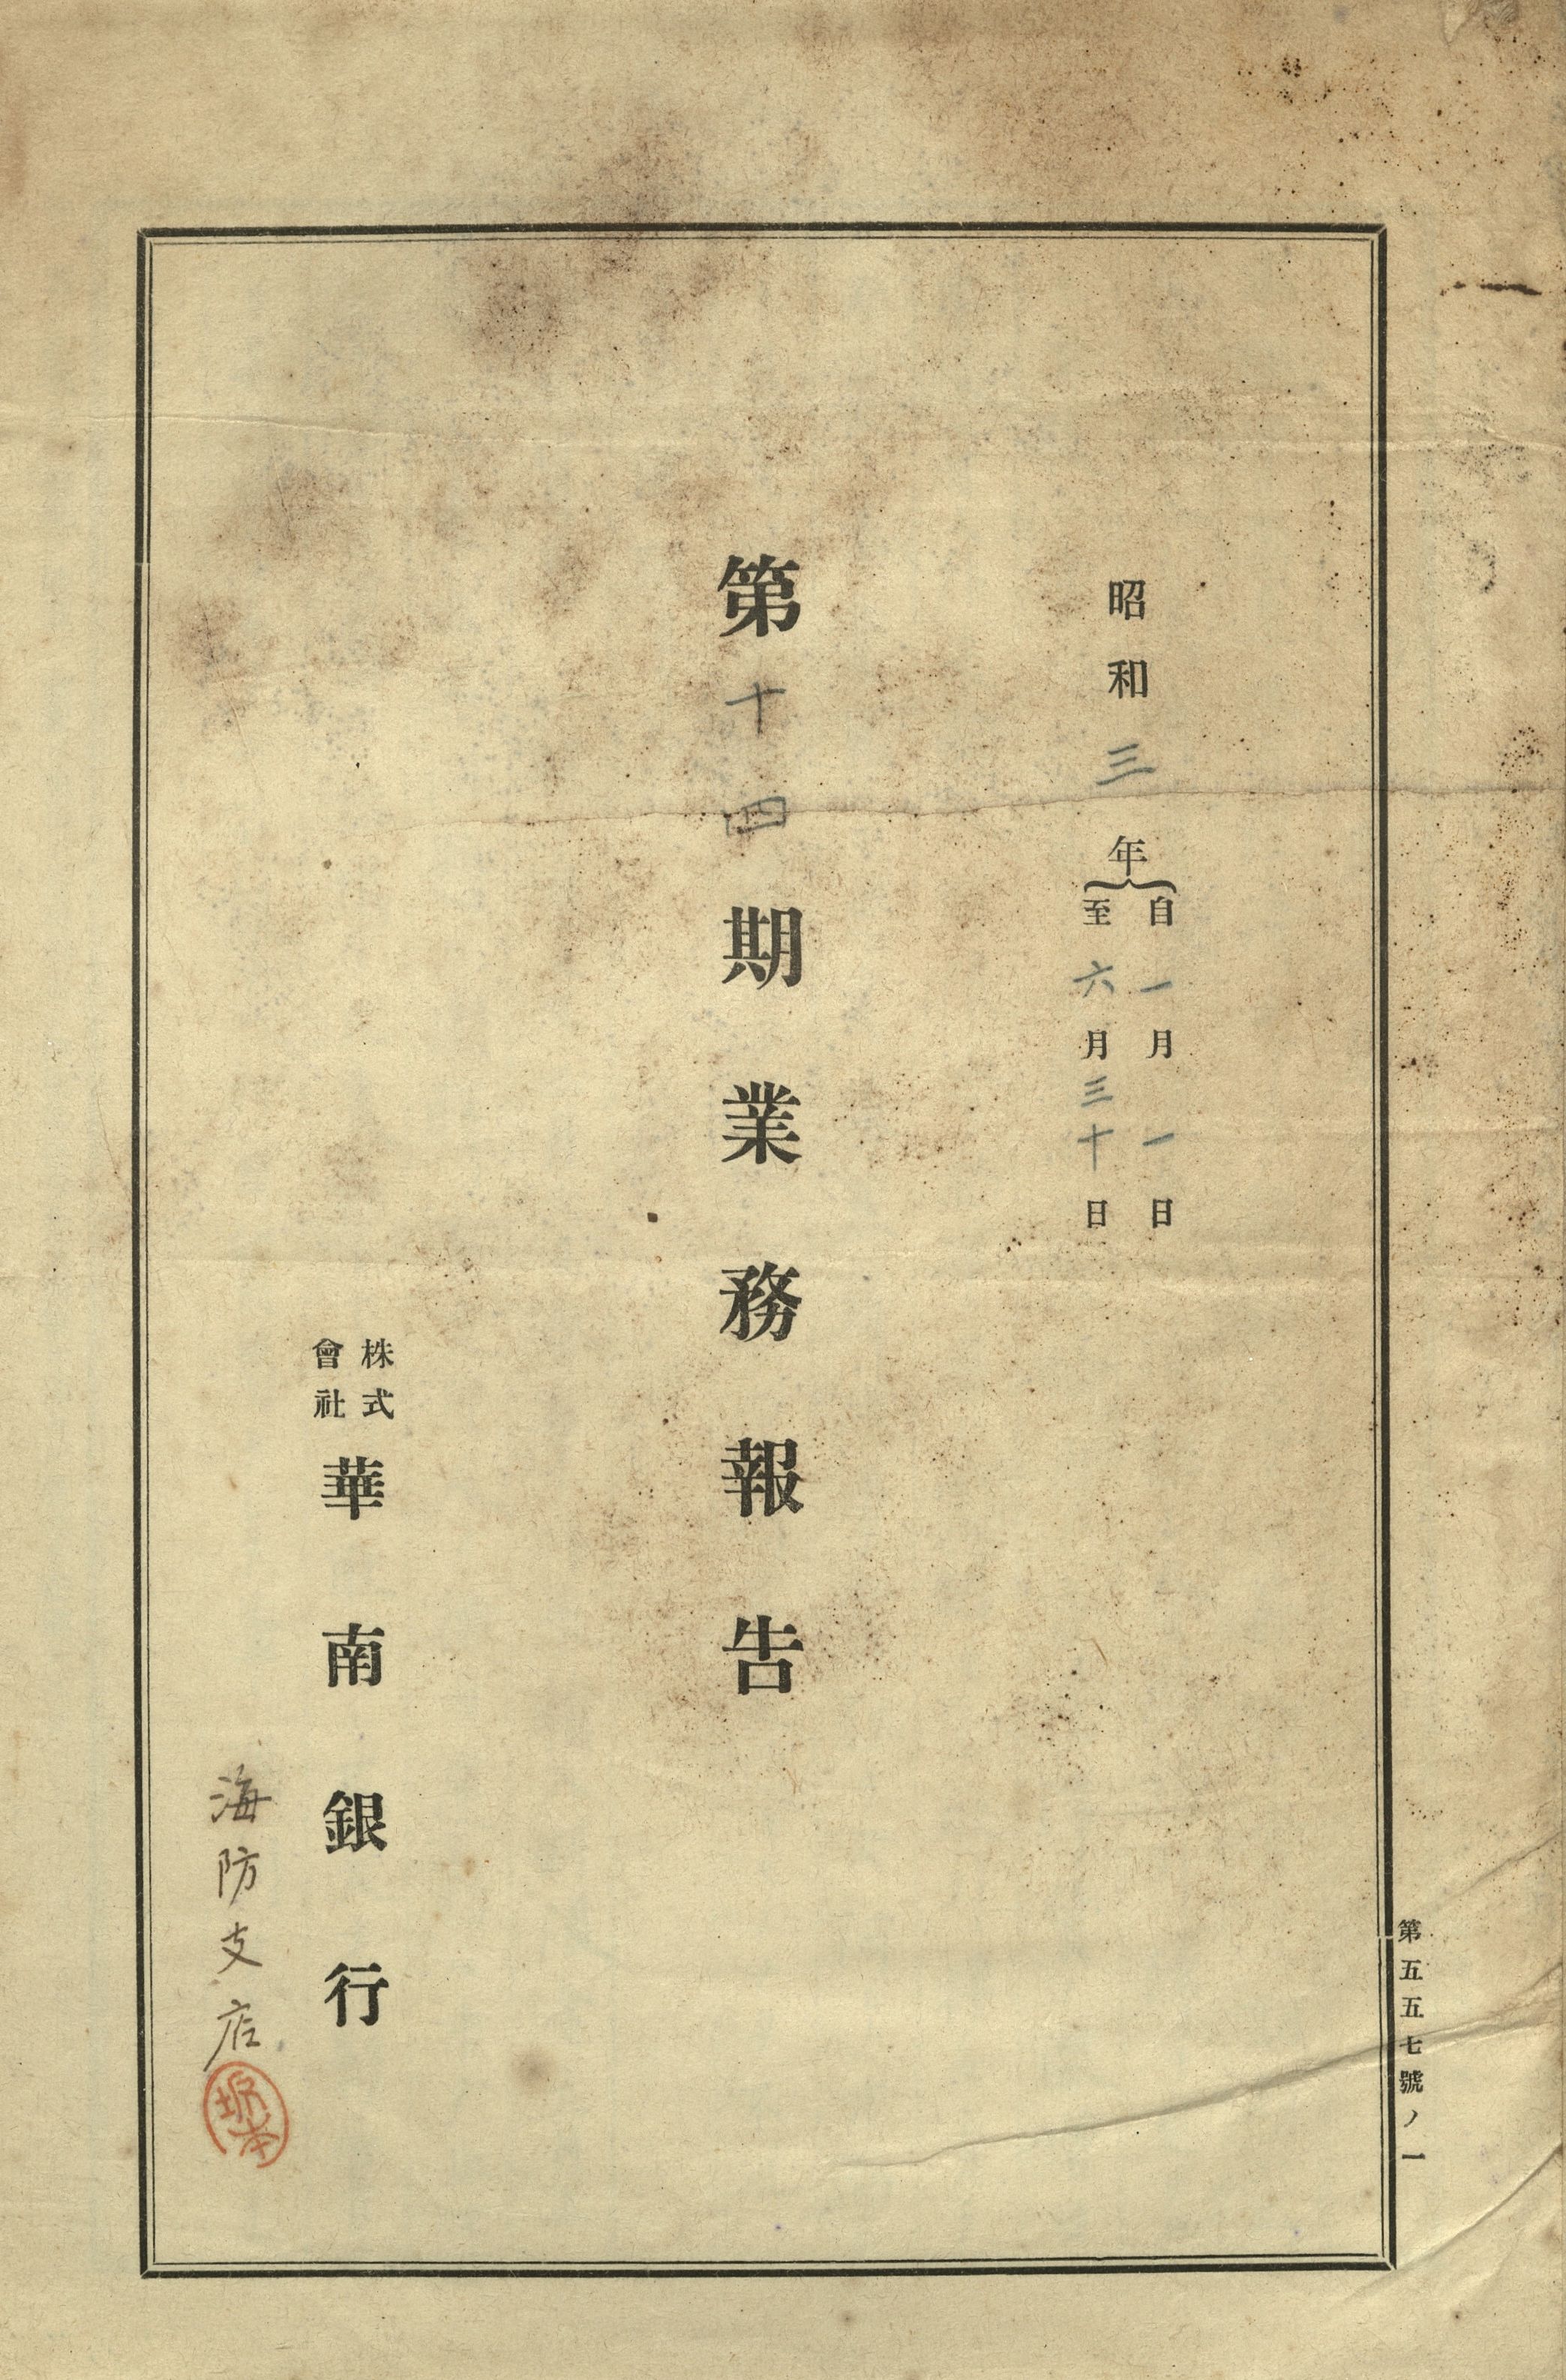 昭和三年
自一月一日
至六月三十日
第十四期業務報告
株式
會社
華南銀行
海防支店
第五五七號ノ一